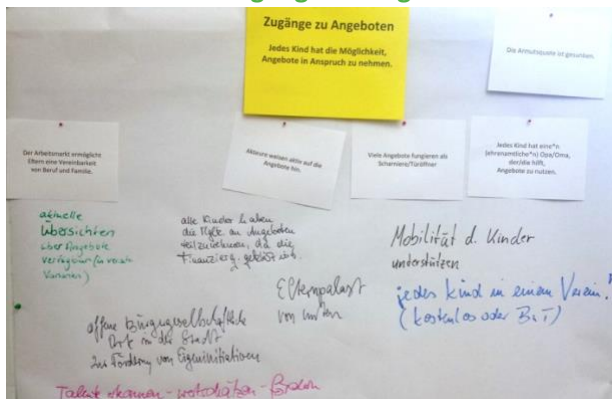 Zugänge zu Angeboten
Jedes Kind hat die Möglichkeit,
Angebote in Anspruch zu nehmen.
Die Armutsquote ist gesunken.
Der Arbeitsmarkt ermöglicht
Eltern eine Vereinbarkeit
von Beruf und Familie.
Akteure weisen aktiv auf die
Angebote hin.
Viele Angebote fungieren als
Scharniere/Türöffner
Jedes Kind hat eine*n
(ehrenamtliche*n) Opa/Oma,
der/die hilft,
Angebote zu nutzen.
aktuelle
Übersichten
über Angebote
verfügbar (in
Varianten)
alle Kinder haben
die an Angeboten
teilzunehmen, da die
Finanzierg. gelöst ist.
Mobilität d. Kinder
unterstützen
Elternpalast
von unten
jedes Kind in einem Verein!
(kostenlos oder BuT)
offene
in der Stadt
zur Förderung von Eigeninitiativen
Talente erkennen - wertschätzen - fördern